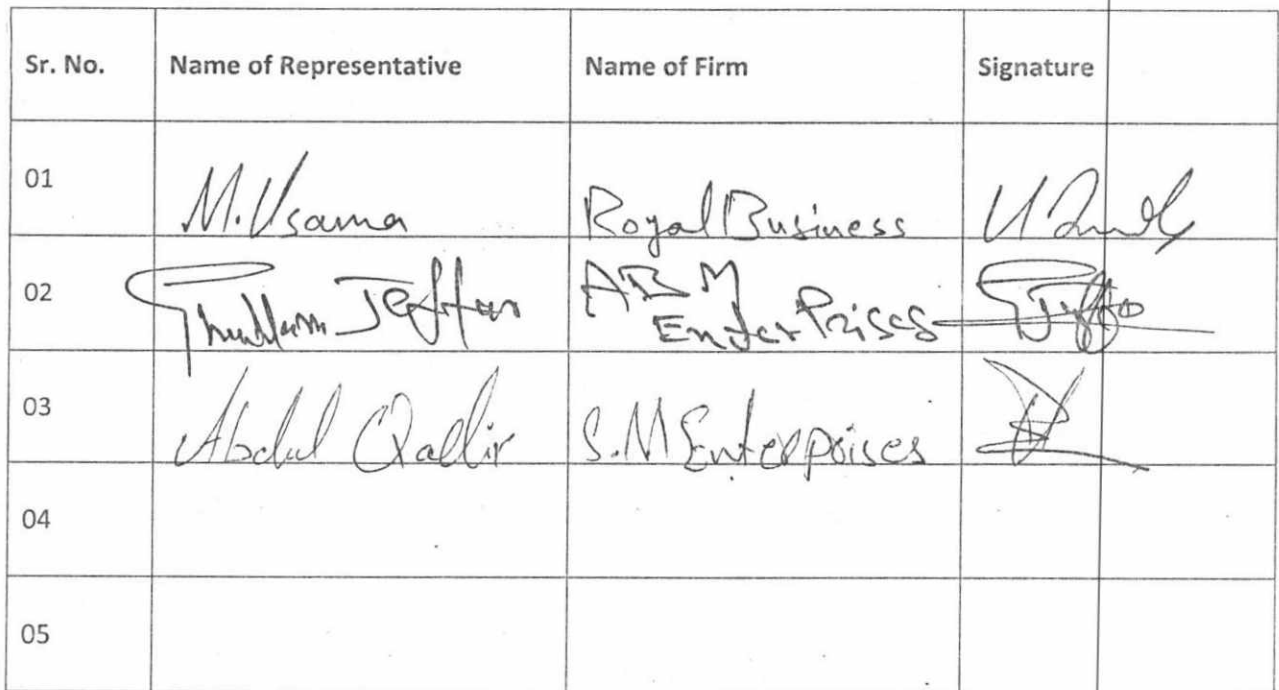 Sr. No. Name of Representative Name of Firm Signature
01 M. Usama Royal Business
02 Ghullam Jaffar ABM
EnterPrises
03 Abdul Qadir S.M Enterprises
04
05